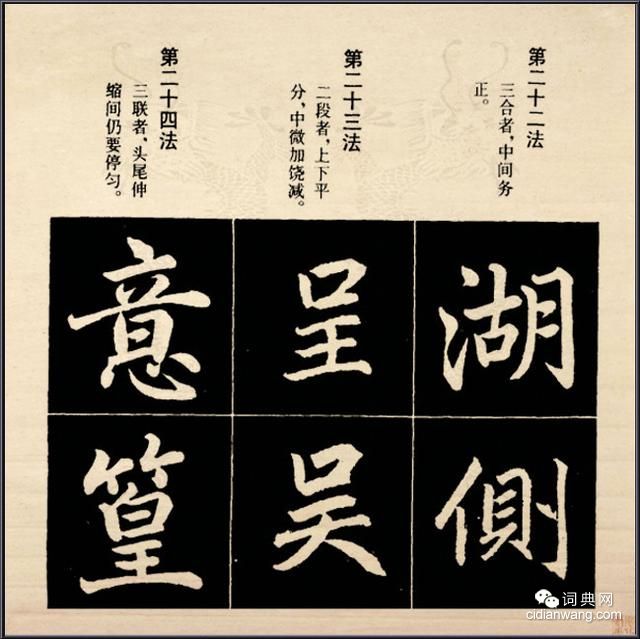 第二十二法
三合者，中间务
正。
第二十三法
二段者，上下平
分，中微加饶减。
第二十四法
三联者，头尾伸
缩间仍要停匀。
湖
側
呈
吴
意
篁
词典网
cidianwang.com